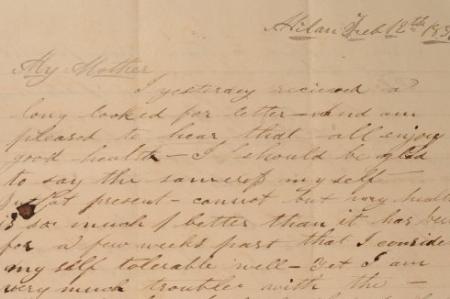 Milan Feb 12th 185
My Mother
I yesterday recieved a
long looked for letter – and am
pleased to hear that all enjoy
good health – I should be glad
to say the same of my self
but at present – cannot but my healt
is so much better than it has be
for a few weeks past that I conside
my self tolerable well – Yet I am
very much trouble with the –